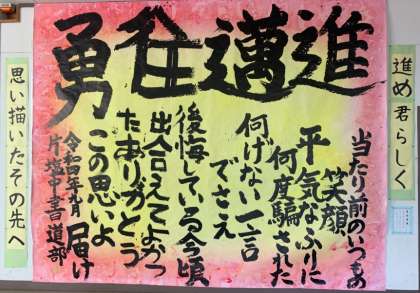 勇往邁進
進め君らしく
当たり前のいつもの
笑顔
平気なふりに
何度騙された
何げない一言
でさえ
後悔している今頃
出合えてよかっ
たありがとう
この思いよ届け
令和四年九月
片塩中書道部
思い描いたその先へ